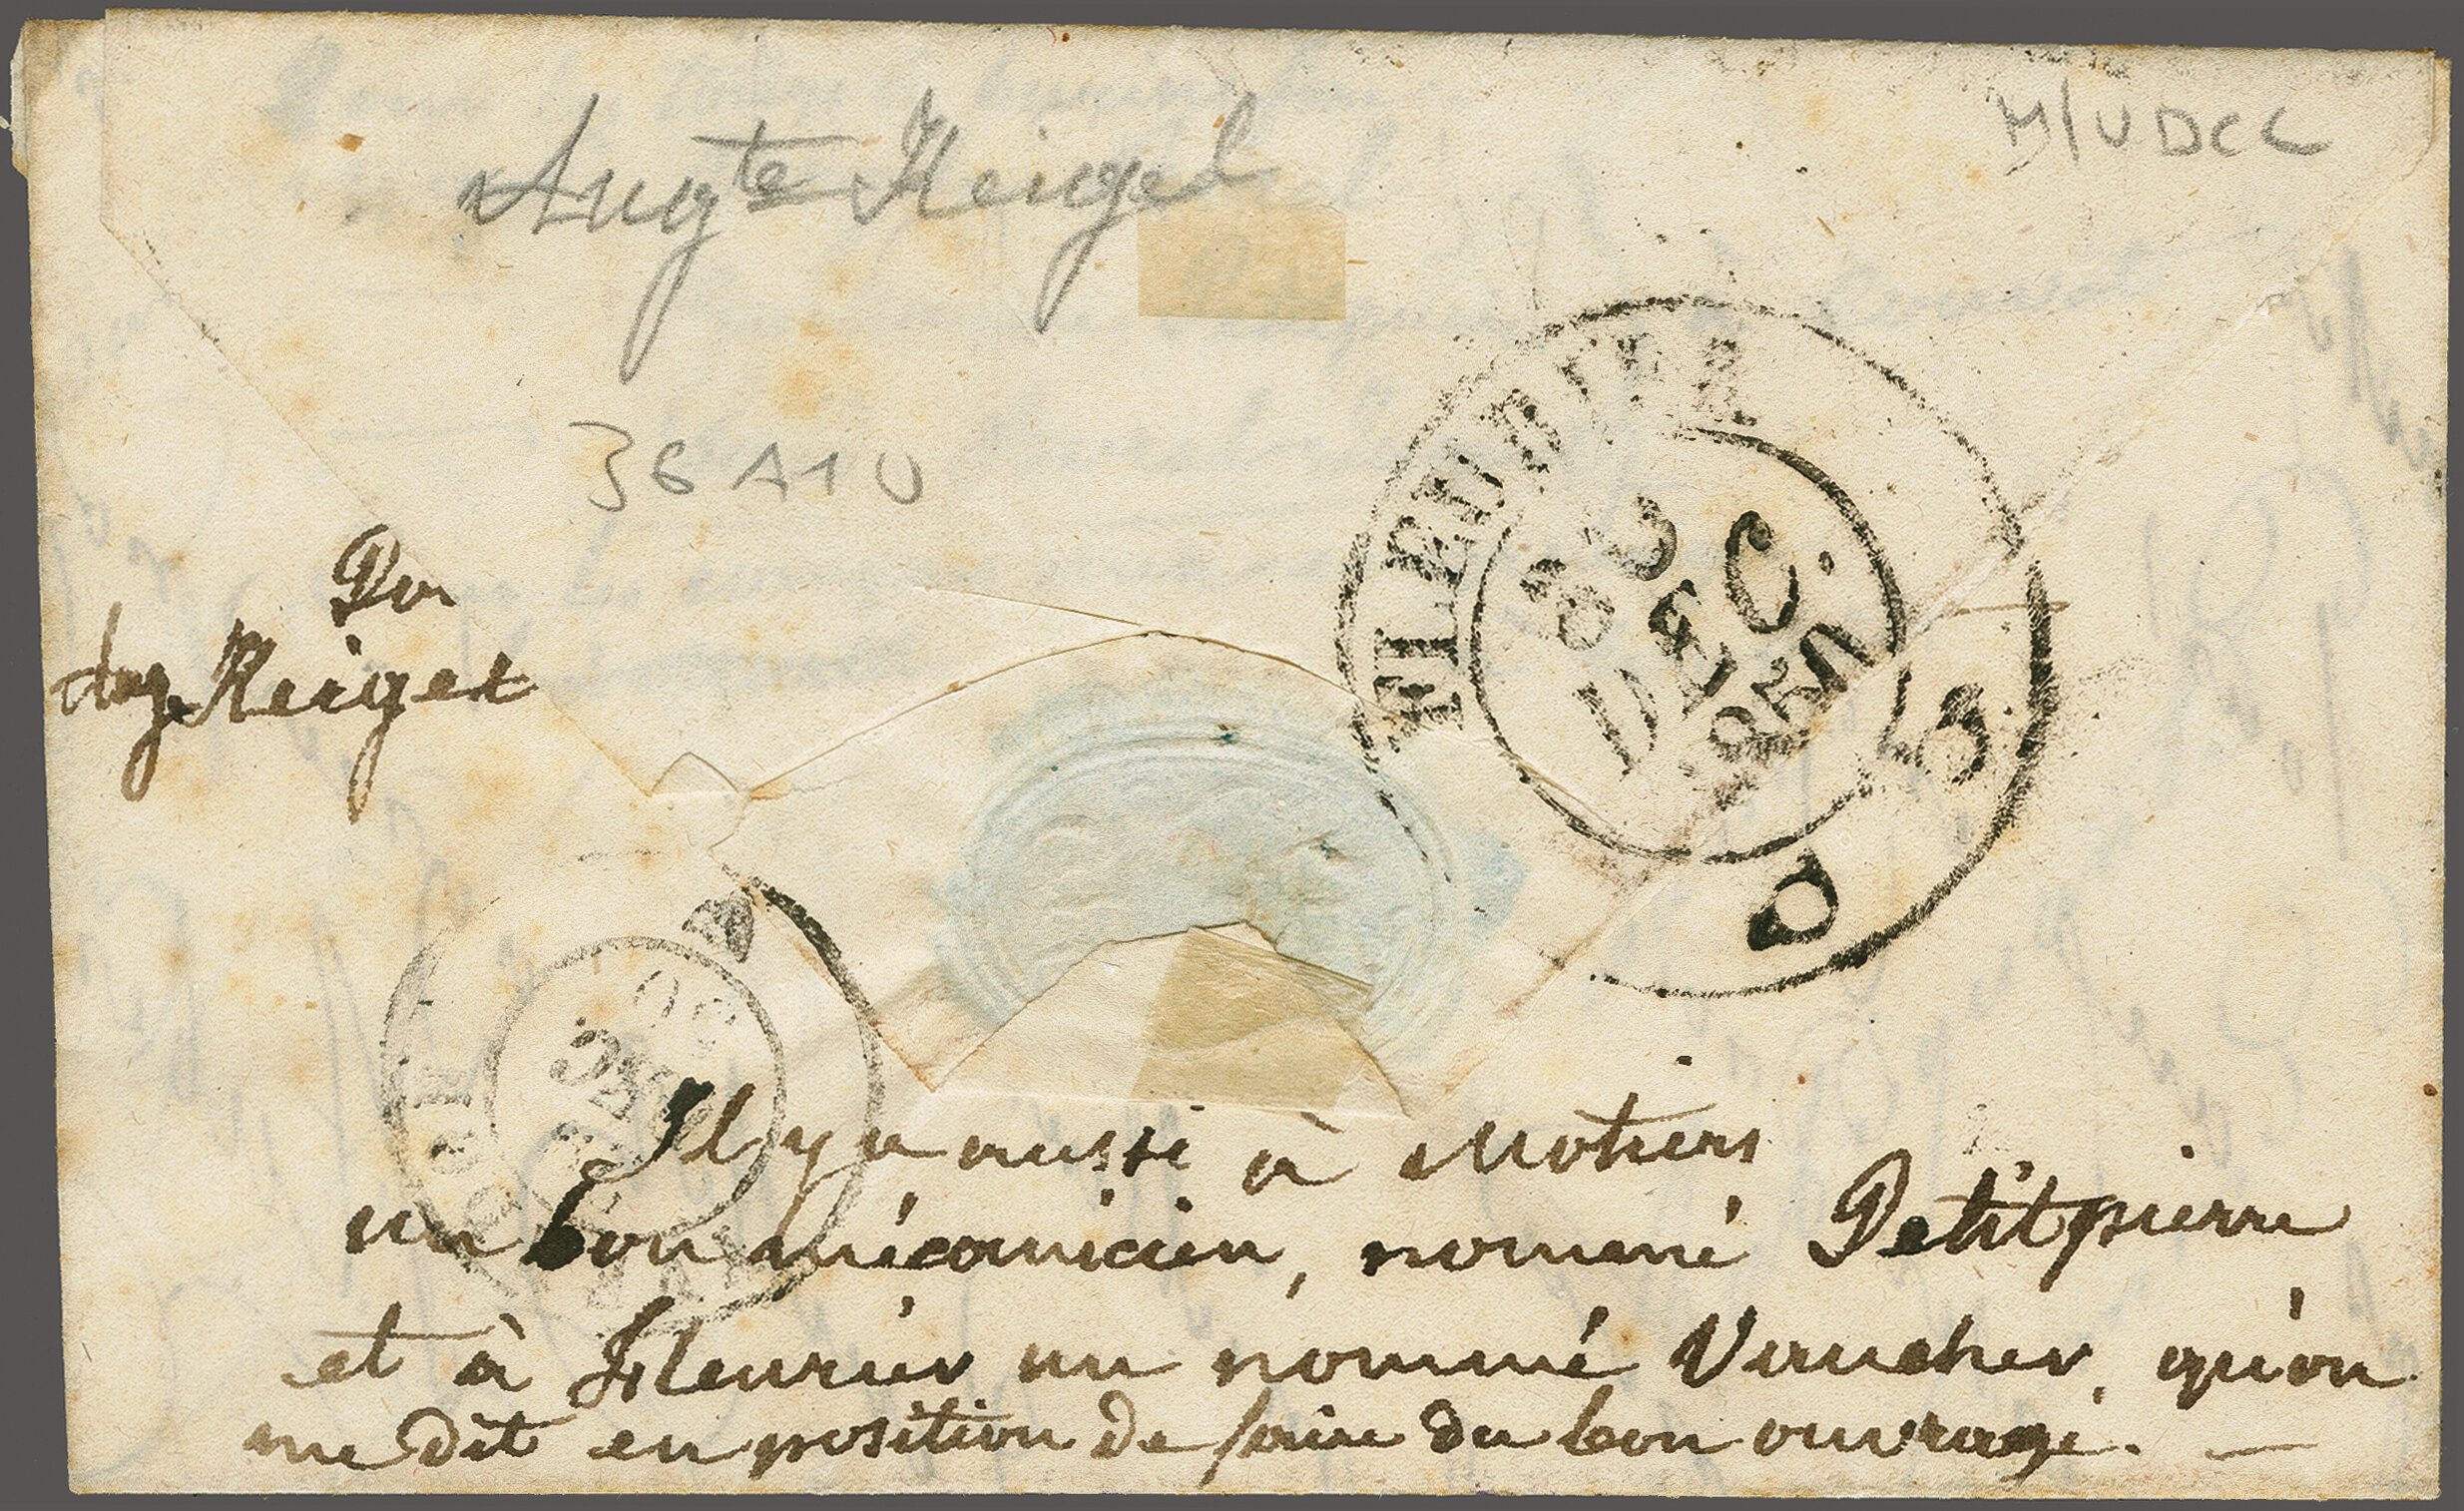 Augte Reigel
M/UDCC
36 A1 U
FLEURIER
30
DEC.
D
Reigel
Il y a aussi à Motiers
un bon mécanicien, nommé Petitpierre
et à Fleurier un nommé Vaucher, qu'on
me dit en position de faire du bon ouvrage. —